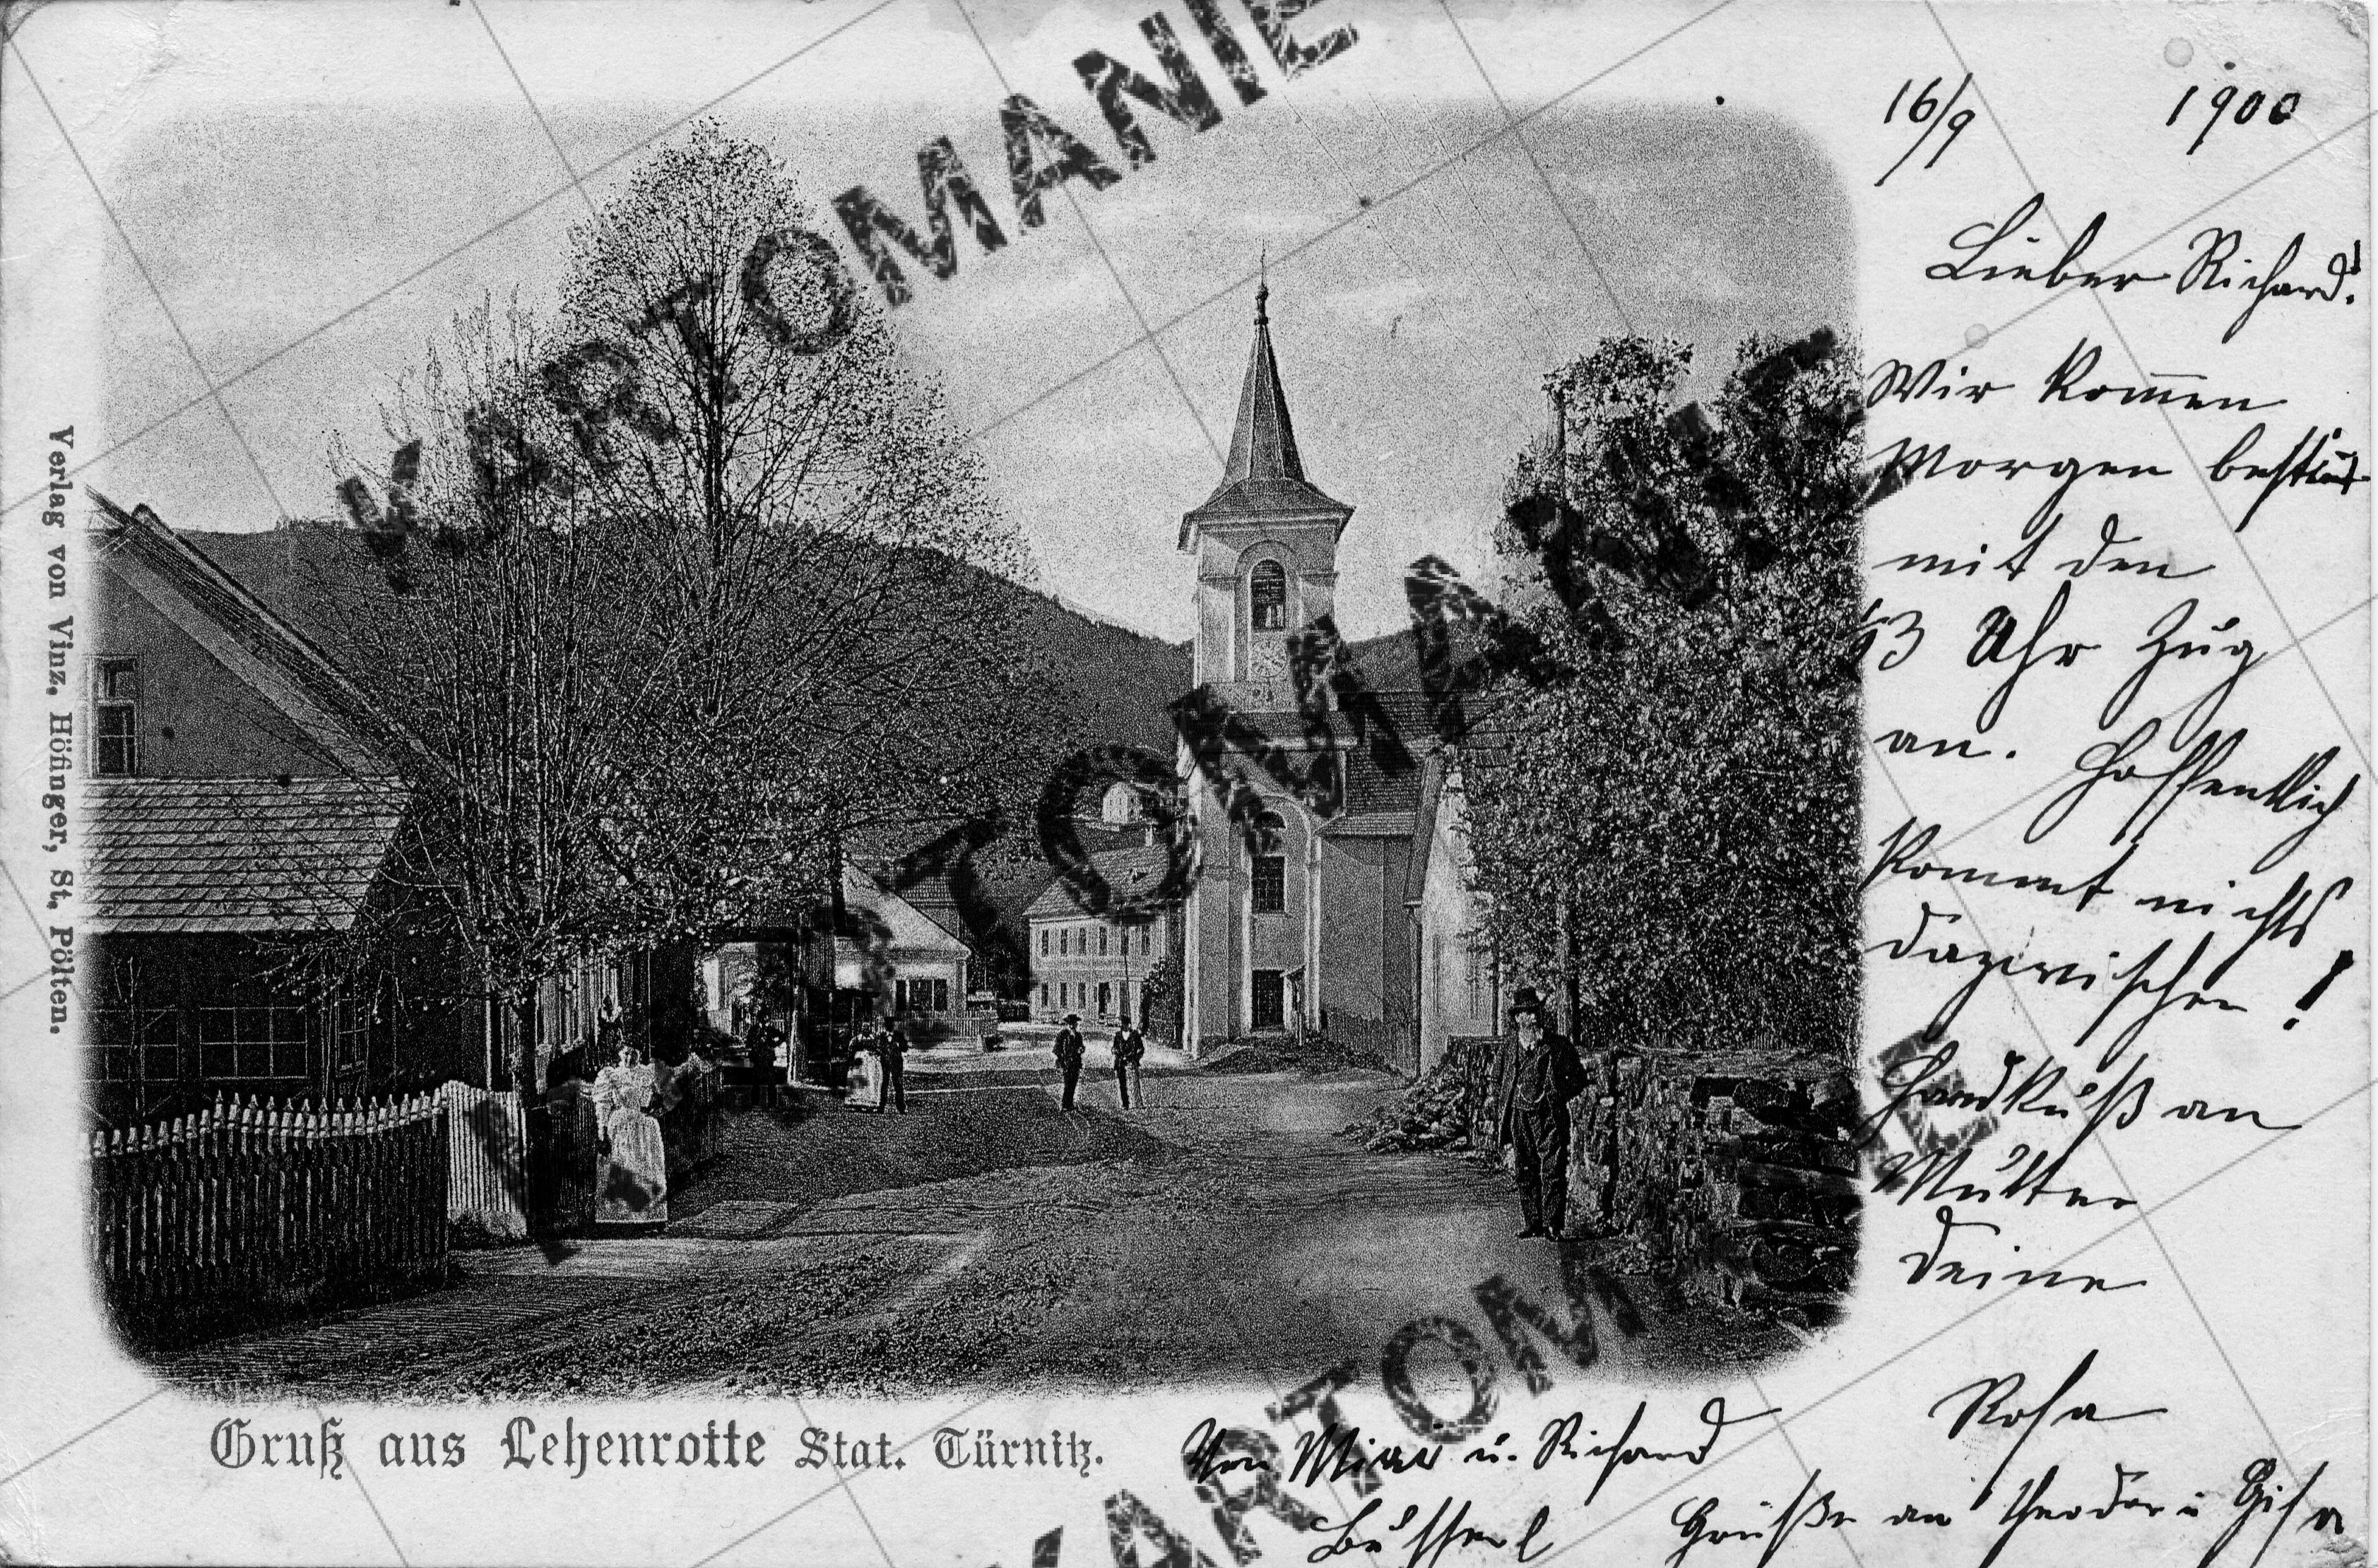 16/9 1900
Lieber Richard!
Wir kommen
Morgen bestimt
mit den
1/2 3 Uhr Zug
an. Hoffentlich
kommt nichts
dazwischen!
Handkuß an
Mutter
Deine
Rosa
Von Mizi u. Richard
Busserl
Grüße an Theodor u Gisa
Gruß aus Lehenrotte Stat. Türnitz.
Verlag von Vinz. Höfinger, St. Pölten.
KARTOMANIE
KARTOMANIE
KARTOMANIE